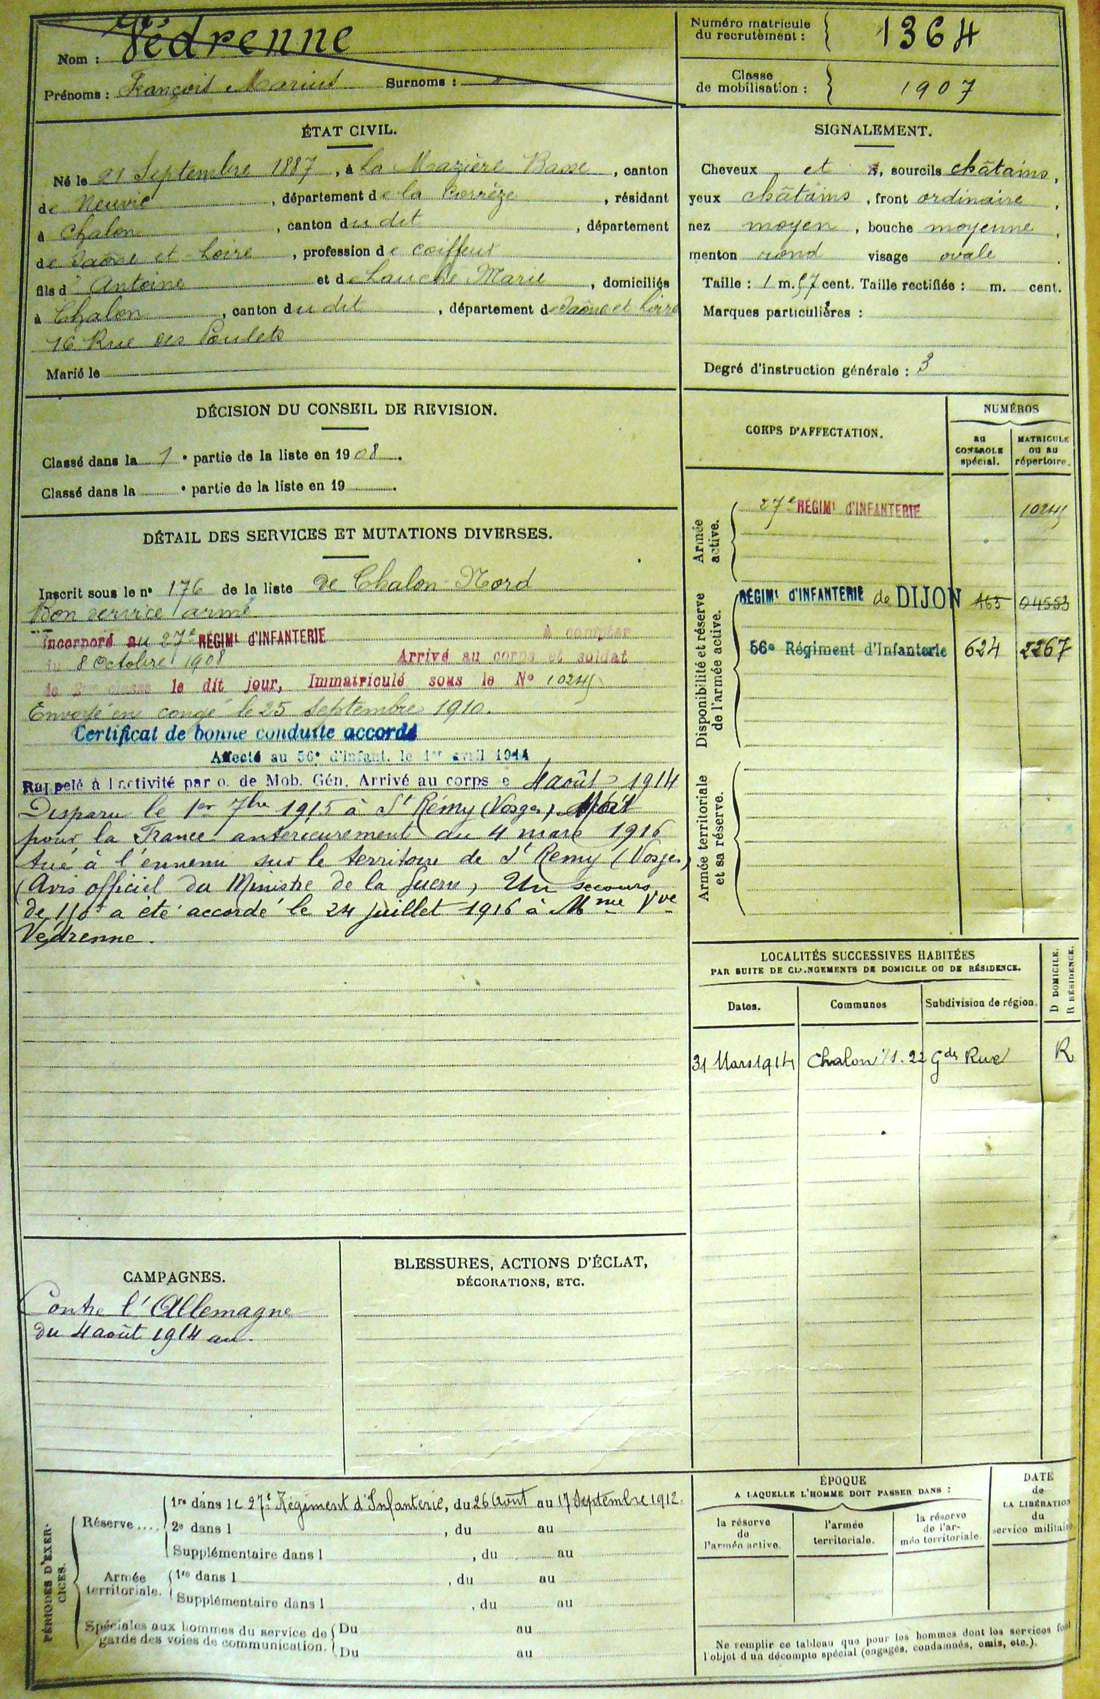 Nom : Védrenne
Prénoms : François Marius Surnoms :
Numéro matricule du recrutement : 1364
Classe de mobilisation : 1907
ÉTAT CIVIL.
Né le 21 Septembre 1887, à La Mazière Basse, canton
de Neuvic, département de la Corrèze, résidant
à Chalon, canton du dit, département
de Saône et Loire, profession de coiffeur
fils d' Antoine et de Marie, domiciliés
à Chalon, canton du dit, département de Saône et Loire
16 Rue des Poulets
Marié le
SIGNALEMENT.
Cheveux et sourcils châtains,
yeux châtains, front ordinaire,
nez moyen, bouche moyenne,
menton rond visage ovale
Taille : 1 m. 57 cent. Taille rectifiée : m. cent.
Marques particulières :
Degré d'instruction générale : 3
DÉCISION DU CONSEIL DE REVISION.
Classé dans la 1e partie de la liste en 1908.
Classé dans la e partie de la liste en 19 .
DÉTAIL DES SERVICES ET MUTATIONS DIVERSES.
Inscrit sous le no 176 de la liste de Chalon-Nord
Bon service armé
Incorporé au 27e RÉGIMt D'INFANTERIE à compter
du 8 Octobre 1908 Arrivé au corps et soldat
de 2me classe le dit jour, Immatriculé sous le No
Envoyé en congé le 25 Septembre 1910.
Certificat de bonne conduite accordé
Affecté au 56e d'Infant. le 1er avril 1914
Rappelé à l'activité par o. de Mob. Gén. Arrivé au corps le 4 août 1914
Disparu le 1er 7bre 1915 à St Rémy (Vosges) Mort
pour la France antérieurement au 4 mars 1916
tué à l'ennemi sur le territoire de St Rémy (Vosges)
(Avis officiel du Ministre de la Guerre) Un secours
de a été accordé le 24 juillet 1916 à Mme Vve
Védrenne.
CORPS D'AFFECTATION.
NUMÉROS
AU CONTROLE spécial.
MATRICULE OU AU répertoire.
Armée active.
27e RÉGIMt D'INFANTERIE
Disponibilité et réserve de l'armée active.
RÉGIMt D'INFANTERIE de DIJON
56e Régiment d'Infanterie 624 2267
Armée territoriale et sa réserve.
LOCALITÉS SUCCESSIVES HABITÉES
PAR SUITE DE CHANGEMENTS DE DOMICILE OU DE RÉSIDENCE.
Dates. Communes Subdivision de région. D DOMICILE. R RÉSIDENCE.
31 Mars 1914 Chalon s/s. 22 Gde Rue R
CAMPAGNES.
Contre l'Allemagne
du 4 août 1914 au
BLESSURES, ACTIONS D'ÉCLAT,
DÉCORATIONS, ETC.
PÉRIODES D'EXERCICES.
Réserve ....
1re dans le 27e Régiment d'Infanterie, du 26 Août au 17 Septembre 1912.
2e dans l , du au
Supplémentaire dans l , du au
Armée territoriale.
1re dans l , du au
Supplémentaire dans l , du au
Spéciales aux hommes du service de garde des voies de communication.
Du au
Du au
ÉPOQUE
A LAQUELLE L'HOMME DOIT PASSER DANS :
la réserve de l'armée active.
l'armée territoriale.
la réserve de l'armée territoriale.
DATE de LA LIBÉRATION du service militaire.
Ne remplir ce tableau que pour les hommes dont les services font
l'objet d'un décompte spécial (engagés, condamnés, omis, etc.).